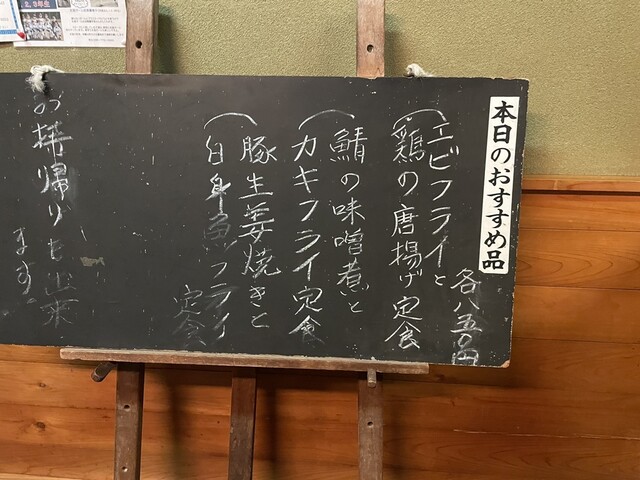 本日のおすすめ品
エビフライと
鶏の唐揚げ定食
各八五〇円
鯖の味噌煮と
カキフライ定食
豚生姜焼きと
白身魚フライ
定食
お持帰りも出来
ます